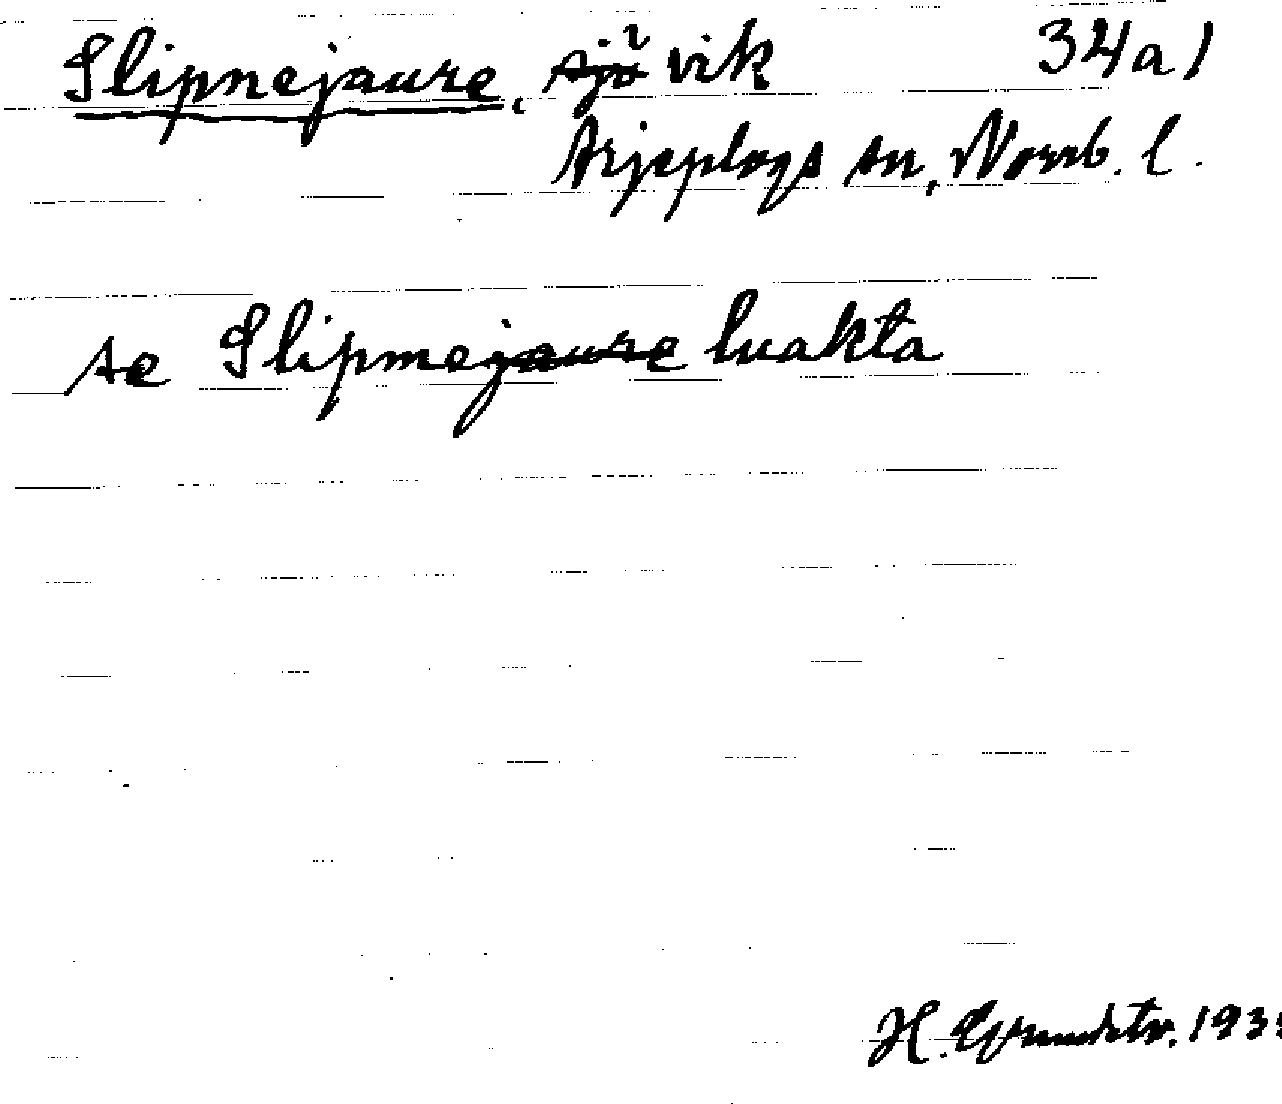 Slipnejaure, sjö vik 34a1
Arjeplogs sn, Norrb. l.
se Slipmejaure luakta
H. Grundstr.